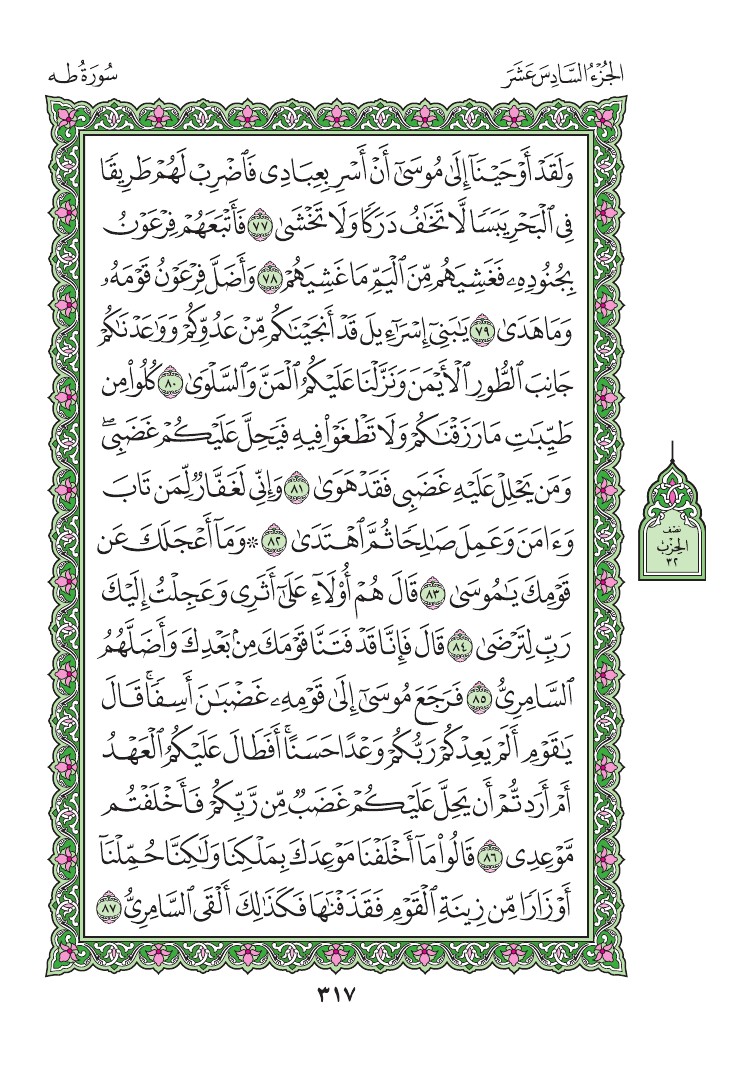 الجُزْءُ السَّادِسَ عَشَرَ
سُورَةُ طه
وَلَقَدْ أَوْحَيْنَآ إِلَىٰ مُوسَىٰٓ أَنْ أَسْرِ بِعِبَادِى فَٱضْرِبْ لَهُمْ طَرِيقًا
فِى ٱلْبَحْرِ يَبَسًا لَّا تَخَٰفُ دَرَكًا وَلَا تَخْشَىٰ ٧٧ فَأَتْبَعَهُمْ فِرْعَوْنُ
بِجُنُودِهِۦ فَغَشِيَهُم مِّنَ ٱلْيَمِّ مَا غَشِيَهُمْ ٧٨ وَأَضَلَّ فِرْعَوْنُ قَوْمَهُۥ
وَمَا هَدَىٰ ٧٩ يَٰبَنِىٓ إِسْرَٰٓءِيلَ قَدْ أَنجَيْنَٰكُم مِّنْ عَدُوِّكُمْ وَوَٰعَدْنَٰكُمْ
جَانِبَ ٱلطُّورِ ٱلْأَيْمَنَ وَنَزَّلْنَا عَلَيْكُمُ ٱلْمَنَّ وَٱلسَّلْوَىٰ ٨٠ كُلُوا۟ مِن
طَيِّبَٰتِ مَا رَزَقْنَٰكُمْ وَلَا تَطْغَوْا۟ فِيهِ فَيَحِلَّ عَلَيْكُمْ غَضَبِى ۖ
وَمَن يَحْلِلْ عَلَيْهِ غَضَبِى فَقَدْ هَوَىٰ ٨١ وَإِنِّى لَغَفَّارٌ لِّمَن تَابَ
وَءَامَنَ وَعَمِلَ صَٰلِحًا ثُمَّ ٱهْتَدَىٰ ٨٢ ۞ وَمَآ أَعْجَلَكَ عَن
قَوْمِكَ يَٰمُوسَىٰ ٨٣ قَالَ هُمْ أُو۟لَآءِ عَلَىٰٓ أَثَرِى وَعَجِلْتُ إِلَيْكَ
رَبِّ لِتَرْضَىٰ ٨٤ قَالَ فَإِنَّا قَدْ فَتَنَّا قَوْمَكَ مِنۢ بَعْدِكَ وَأَضَلَّهُمُ
ٱلسَّامِرِىُّ ٨٥ فَرَجَعَ مُوسَىٰٓ إِلَىٰ قَوْمِهِۦ غَضْبَٰنَ أَسِفًا ۚ قَالَ
يَٰقَوْمِ أَلَمْ يَعِدْكُمْ رَبُّكُمْ وَعْدًا حَسَنًا ۚ أَفَطَالَ عَلَيْكُمُ ٱلْعَهْدُ
أَمْ أَرَدتُّمْ أَن يَحِلَّ عَلَيْكُمْ غَضَبٌ مِّن رَّبِّكُمْ فَأَخْلَفْتُم
مَّوْعِدِى ٨٦ قَالُوا۟ مَآ أَخْلَفْنَا مَوْعِدَكَ بِمَلْكِنَا وَلَٰكِنَّا حُمِّلْنَآ
أَوْزَارًا مِّن زِينَةِ ٱلْقَوْمِ فَقَذَفْنَٰهَا فَكَذَٰلِكَ أَلْقَى ٱلسَّامِرِىُّ ٨٧
نصف
الحِزْبِ
٣٢
٣١٧